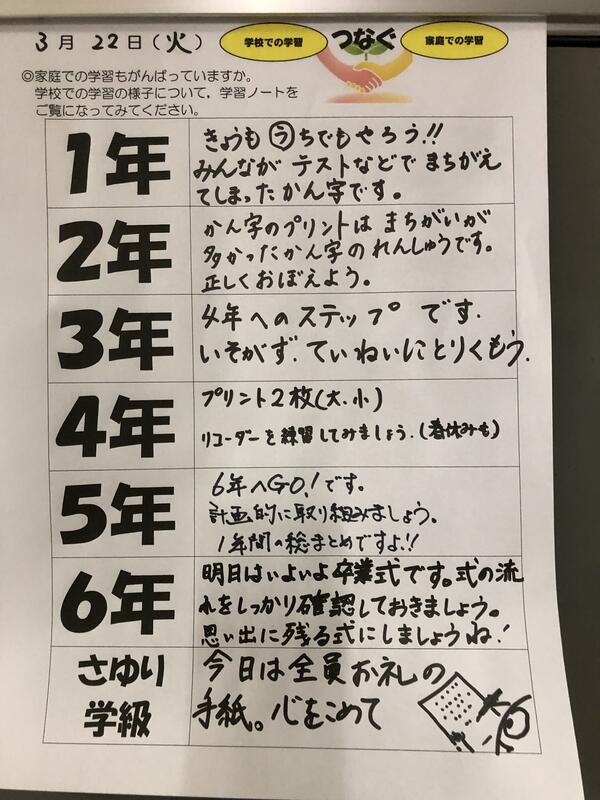 3月22日(火)
学校での学習 つなぐ 家庭での学習
◎家庭での学習もがんばっていますか。
学校での学習の様子について,学習ノートを
ご覧になってみてください。
1年
きょうも うちでもやろう!!
みんなが テストなどで まちがえ
てしまったかん字です。
2年
かん字のプリントは まちがいが
多かったかん字の れんしゅうです。
正しくおぼえよう。
3年
4年へのステップ です.
いそがず.ていねいにとりくもう.
4年
プリント2枚(大.小)
リコーダーを練習してみましょう.(春休みも)
5年
6年へGO!です。
計画的に取り組みましょう。
1年間の総まとめですよ!!
6年
明日はいよいよ卒業式です。式の流
れをしっかり確認しておきましょう。
思い出に残る式にしましょうね!
さゆり
学級
今日は全員お礼の
手紙。心をこめて